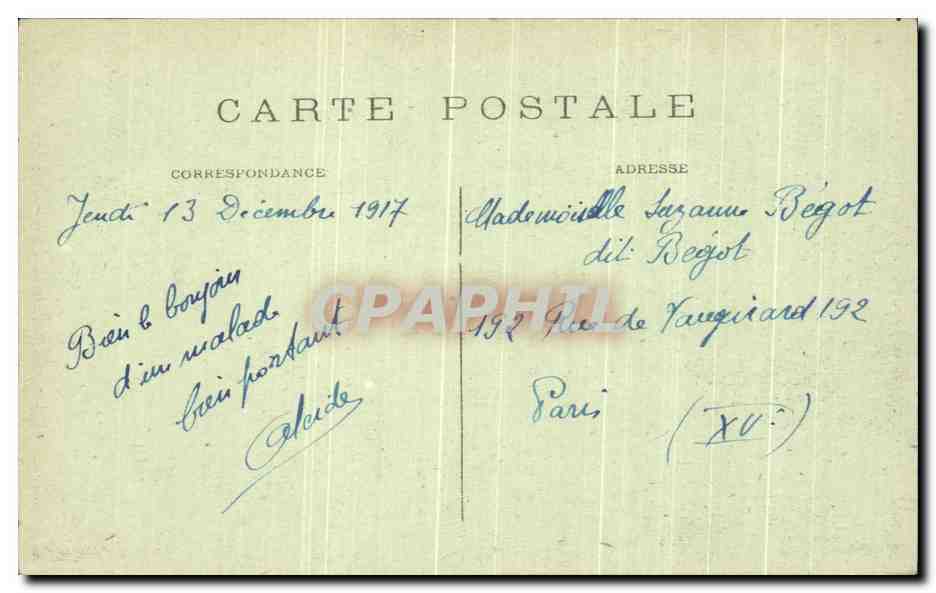 CARTE POSTALE
CORRESPONDANCE
Jeudi 13 Décembre 1917
Bien le bonjour
d'un malade
bien portant
Alcide
ADRESSE
Mademoiselle Suzanne Bégot
dit Bégot
192 Rue de Vaugirard 192
Paris (XVe)
CPAPHIL